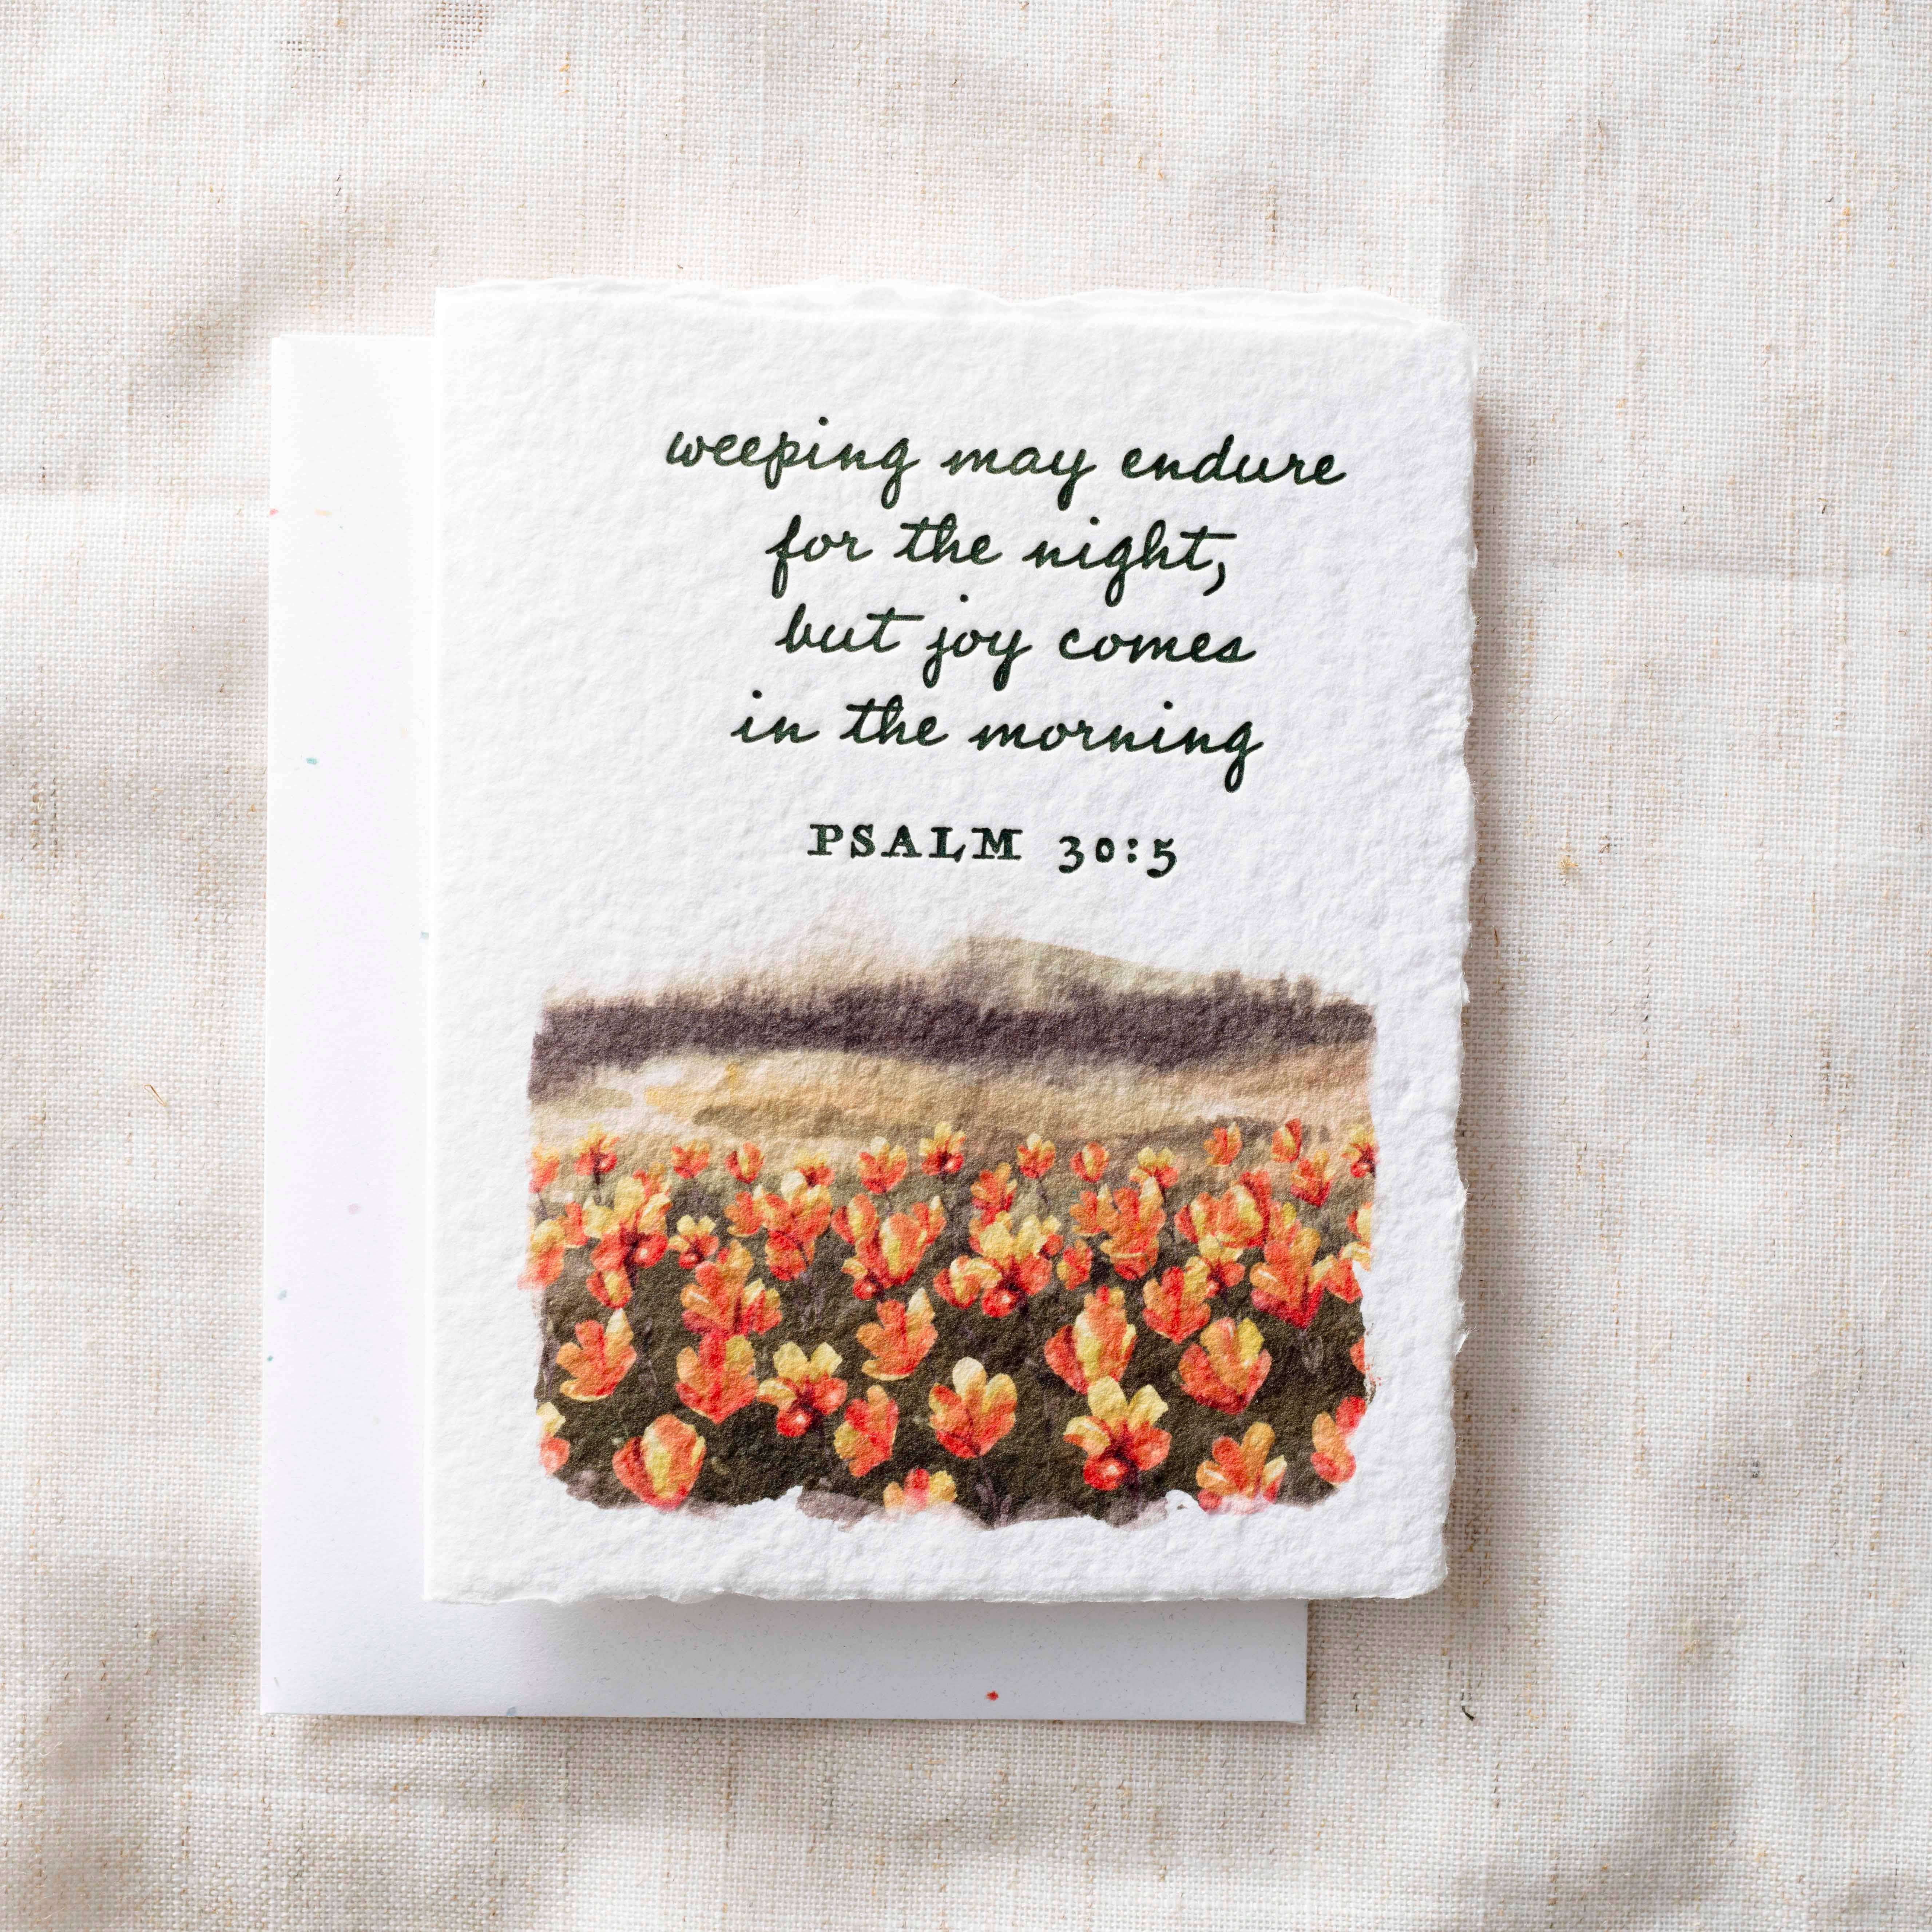 weeping may endure
for the night,
but joy comes
in the morning
PSALM 30:5